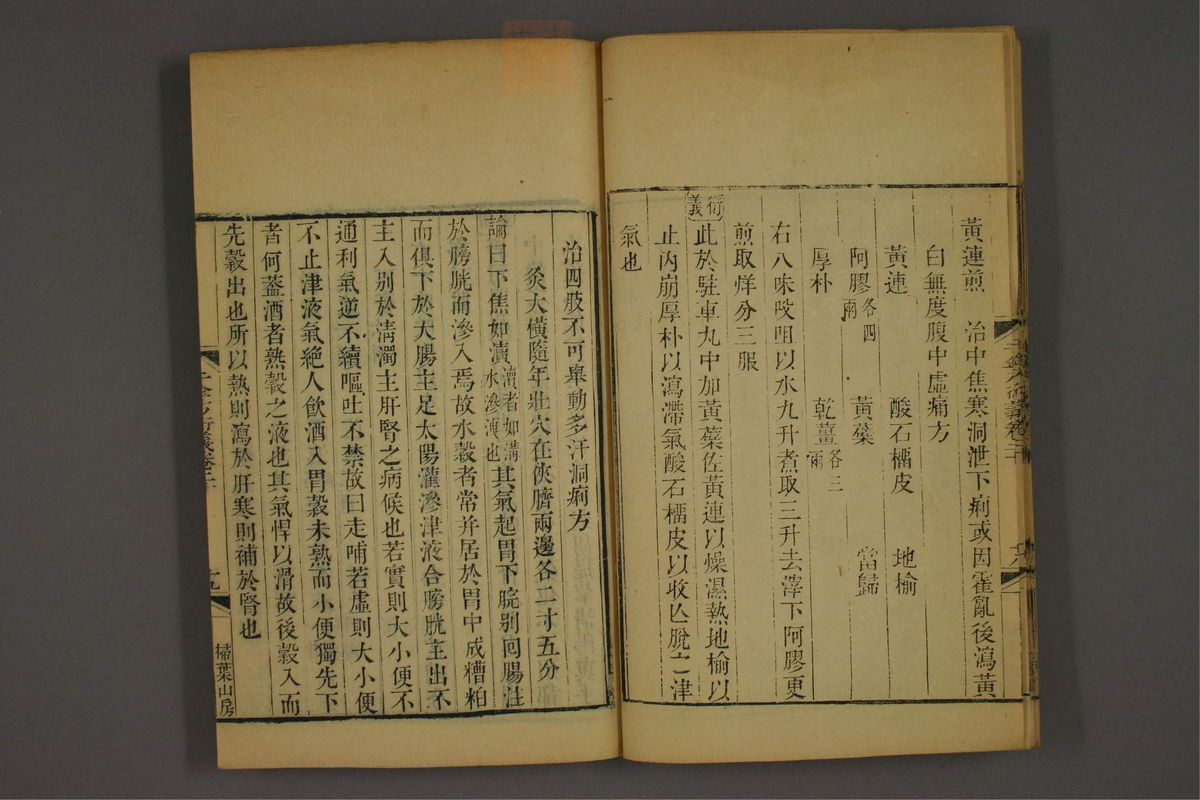 黃連煎　治中焦寒洞泄下痢或因霍亂後瀉黃
白無度腹中虛痛方
黃連　酸石榴皮　地榆
阿膠各四兩　黃蘗　當歸
厚朴　乾薑各三兩
右八味㕮咀以水九升煮取三升去滓下阿膠更
煎取烊分三服
衍義
此於駐車丸中加黃蘗佐黃連以燥濕熱地榆以
止內崩厚朴以瀉滯氣酸石榴皮以收亾脫之津
氣也
治四肢不可舉動多汗洞痢方
灸大橫隨年壯穴在俠臍兩邊各二寸五分
論曰下焦如瀆瀆者如溝水滲洩也其氣起胃下脘別回腸注
於膀胱而滲入焉故水穀者常并居於胃中成糟粕
而俱下於大腸主足太陽灌滲津液合膀胱主出不
主入別於清濁主肝腎之病候也若實則大小便不
通利氣逆不續嘔吐不禁故曰走哺若虛則大小便
不止津液氣絕人飲酒入胃穀未熟而小便獨先下
者何蓋酒者熟穀之液也其氣悍以滑故後穀入而
先穀出也所以熱則瀉於肝寒則補於腎也
掃葉山房